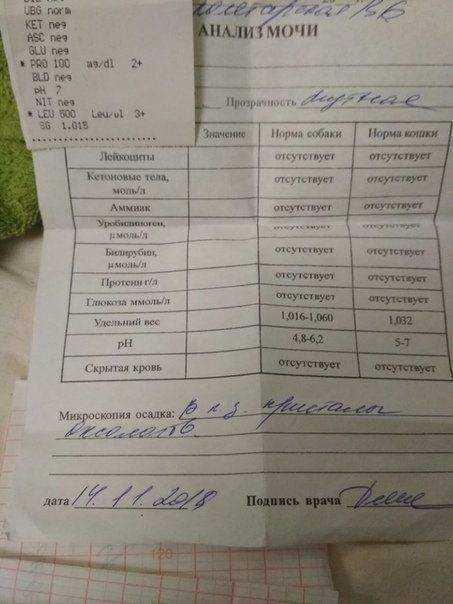 UBG norm
KET neg
ASC neg
GLU neg
* PRO 100 mg/dl 2+
BLD neg
pH 7
NIT neg
* LEU 500 Leu/ul 3+
SG 1.015
АНАЛИЗ МОЧИ
Прозрачность мутная
Значение Норма собаки Норма кошки
Лейкоциты отсутствует отсутствует
Кетоновые тела, моль/л отсутствует отсутствует
Аммиак отсутствует отсутствует
Уробилиноген, μмоль/л отсутствует отсутствует
Билирубин, μмоль/л отсутствует отсутствует
Протеин г/л отсутствует отсутствует
Глюкоза ммоль/л отсутствует отсутствует
Удельний вес 1,016-1,060 1,032
pH 4,8-6,2 5-7
Скрытая кровь отсутствует отсутствует
Микроскопия осадка: в п.з. кристалы
оксалатов
дата 14.11.2018 Подпись врача
120